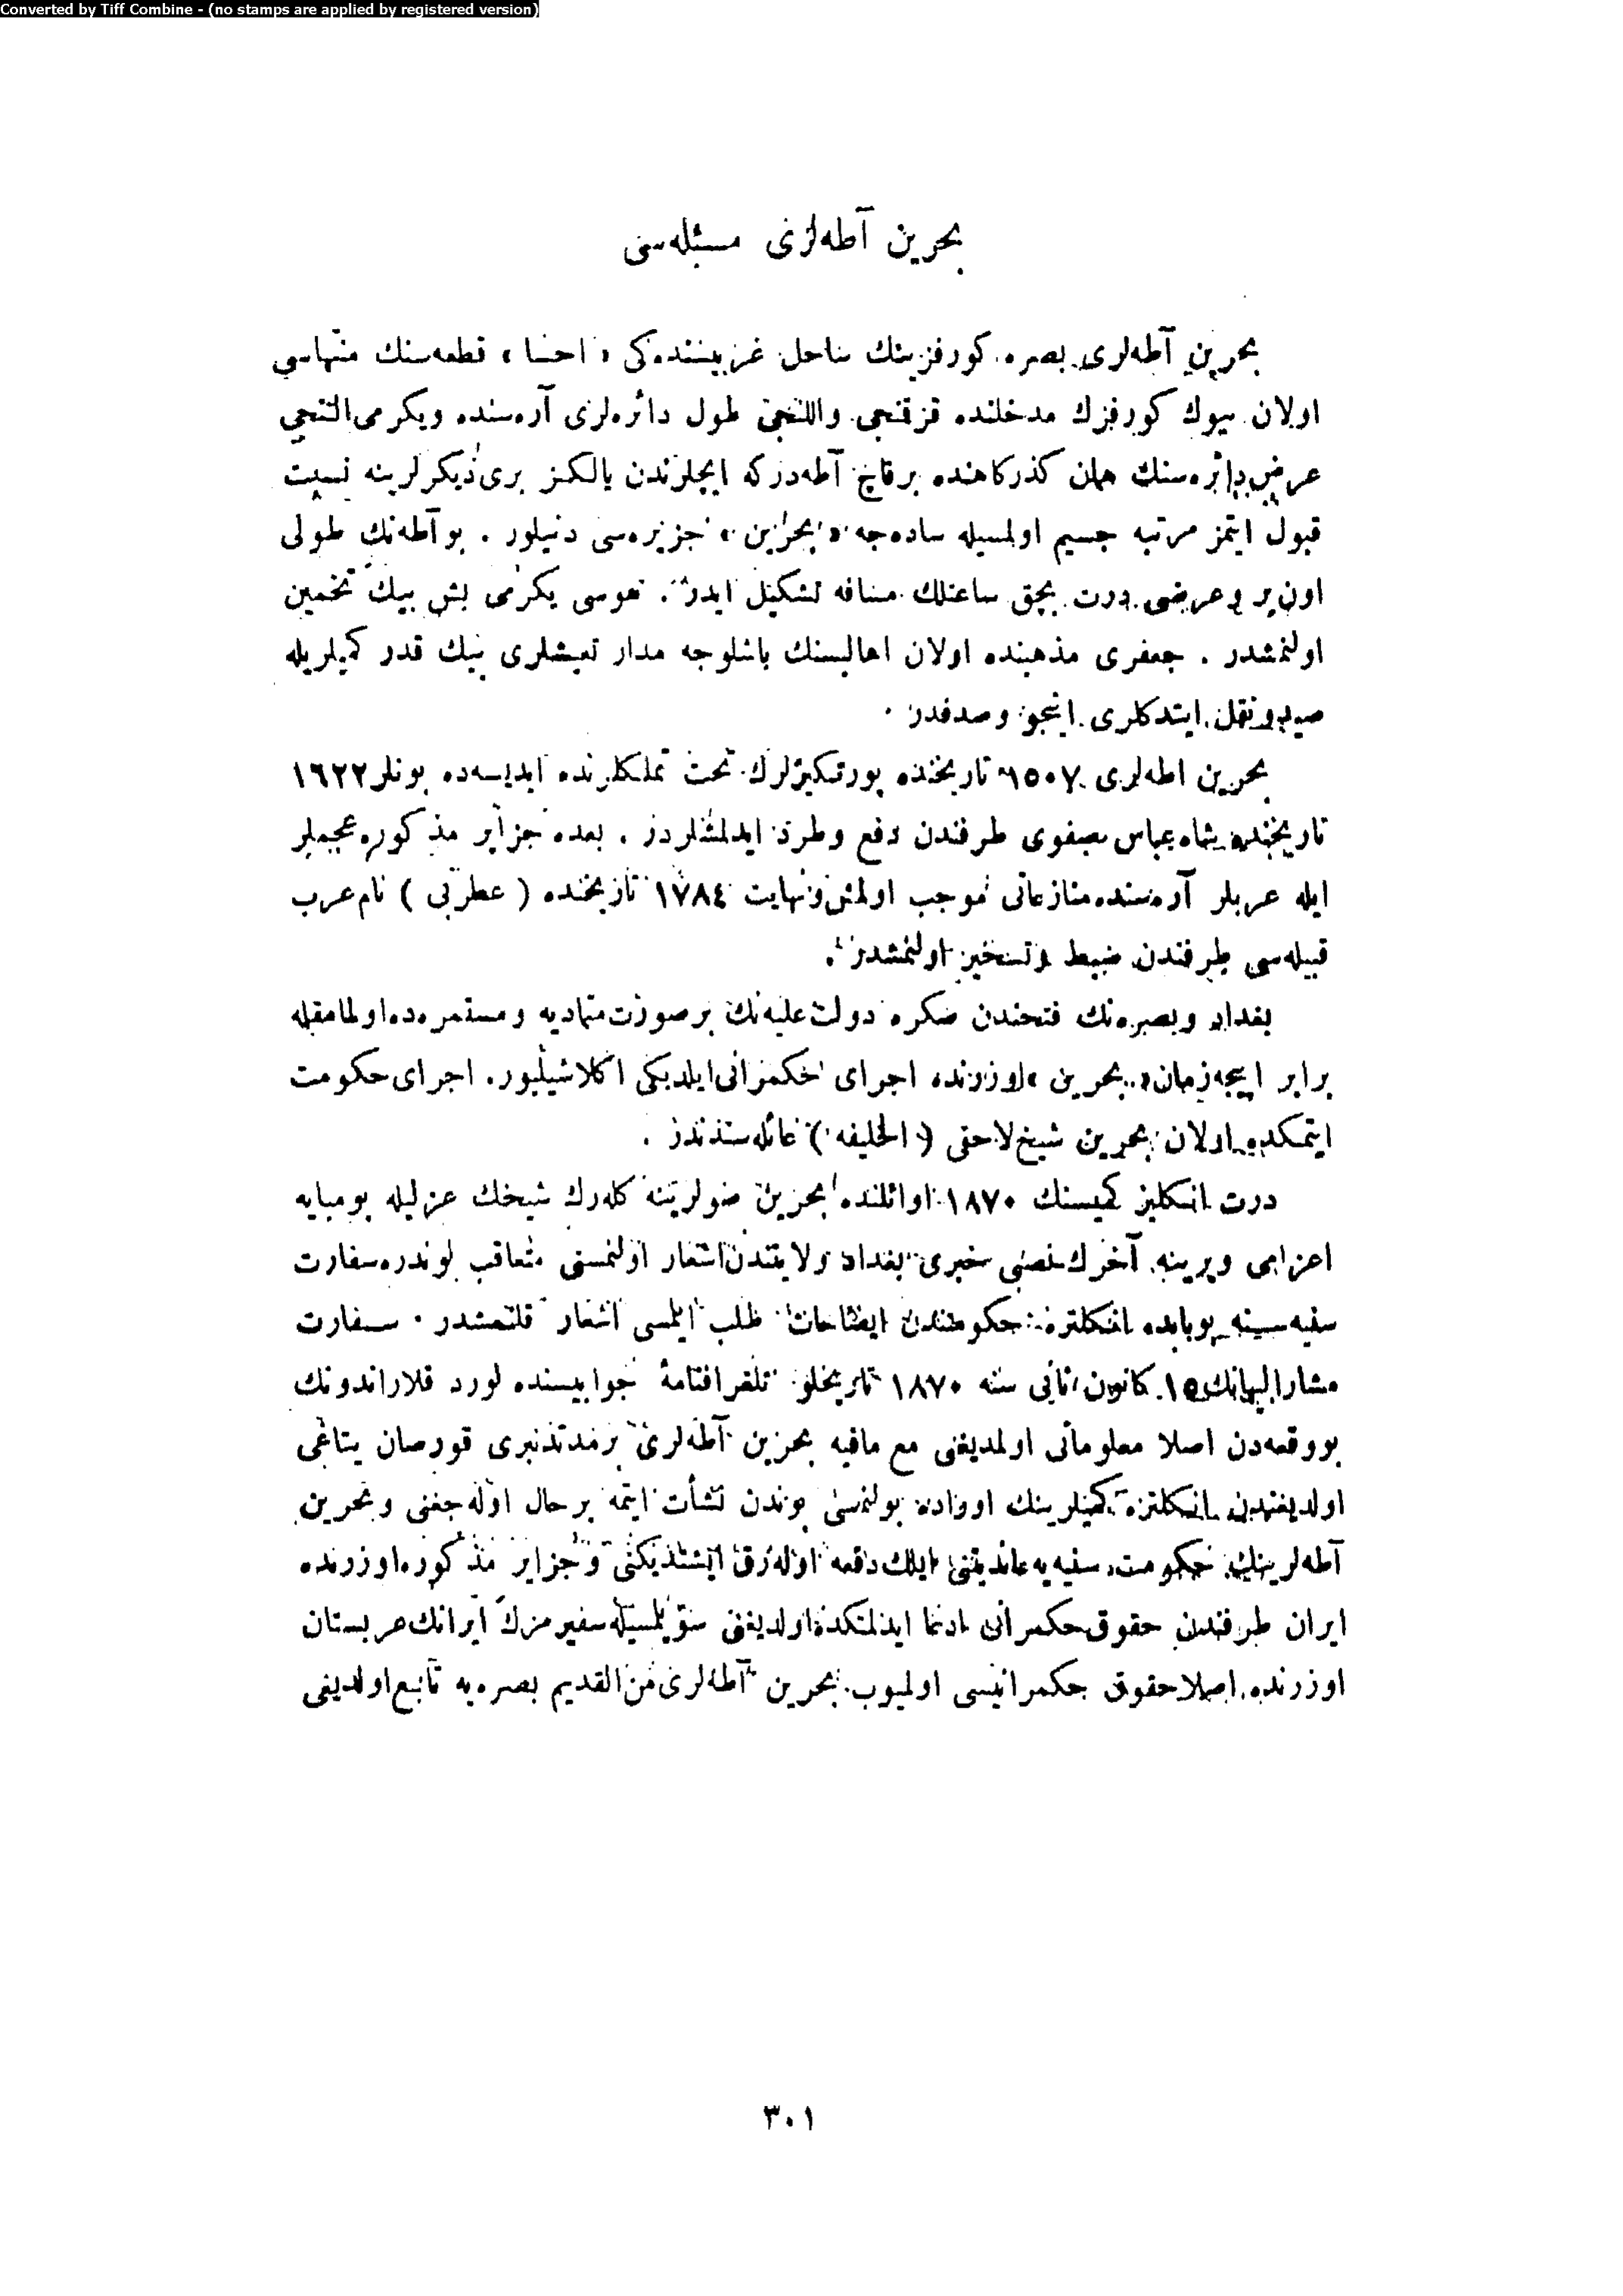 Converted by Tiff Combine - (no stamps are applied by registered version)
بحرين آطه‌لرى مسئله‌سى
بحرين آطه‌لرى بصره كورفزينك ساحل غربيسنده‌كى « احسا » قطعه‌سنك منتهاسى
اولان بيوك كورفزك مدخلنده قرقنجى واللنجى طول دائره‌لرى آره‌سنده ويكرمى التنجى
عرض دائره‌سنك همان كذركاهنده برقاچ آطه‌دركه ايچلرندن يالكز برى ديكرلرينه نسبت
قبول ايتمز مرتبه جسيم اولمسيله ساده‌جه « بحرين » جزيره‌سى دنيلور . بو آطه‌نك طولى
اون بر وعرضى درت بچق ساعتلك مسافه تشكيل ايدر . نفوسى يكرمى بش بيك تخمين
اولنمشدر . جعفرى مذهبنده اولان اهاليسنك باشلوجه مدار تعيشلرى بيك قدر كميلريله
صيد ونقل ايتدكلرى اينجو وصدفدر .
بحرين اطه‌لرى ١٥٠٧ تاريخنده پورتكيزلرك تحت تملكلرنده ايديسه‌ده بونلر ١٦٢٢
تاريخنده شاه عباس صفوى طرفندن دفع وطرد ايدلمشلردر . بعده جزاير مذكوره عجملر
ايله عربلر آره‌سنده منازعاتى موجب اولمش ونهايت ١٧٨٤ تاريخنده ( عطربى ) نام عرب
قبيله‌سى طرفندن ضبط وتسخير اولنمشدر .
بغداد وبصره‌نك فتحندن صكره دولت عليه‌نك بر صورت متماديه ومستمره‌ده اولمامقله
برابر ايجه زمان « بحرين » اوزرنده اجراى حكمرانى ايلديكى اكلاشيليور . اجراى حكومت
ايتمكده اولان بحرين شيخ لاحقى ( الخليفه ) عائله‌سندندر .
درت انكليز كميسنك ١٨٧٠ اوائلنده بحرين صولرينه كله‌رك شيخك عزليله بومبايه
اعزامى ويرينه آخرك نصبى خبرى بغداد ولايتندن اشعار اولنمسنى متعاقب لوندره سفارت
سنيه‌سينه بوبابده انكلتره حكومتندن ايضاحات طلب ايلمسى اشعار قلنمشدر . سفارت
مشار اليهانك ١٥ كانون ثانى سنه ١٨٧٠ تاريخلو تلغرافنامهٔ جوابيسنده لورد قلاراندونك
بو وقعه‌دن اصلا معلوماتى اولمديغنى مع مافيه بحرين آطه‌لرى بر مدتدنبرى قورصان يتاغى
اولديغندن انكلتره كميلرينك اوراده بولنمسى بوندن نشأت ايتمه بر حال اوله‌جغنى وبحرين
آطه‌لرينك حكومت سنيه‌يه عائديتنى ايلك دفعه اوله‌رق ايشتديكنى وجزاير مذكوره اوزرنده
ايران طرفندن حقوق حكمرانى ادعا ايدلمكده اولديغنى سويلمسيله سفيرمزك ايرانك عربستان
اوزرنده اصلا حقوق حكمرانيسى اولميوب بحرين آطه‌لرى من القديم بصره‌يه تابع اولديغنى
٣٠١